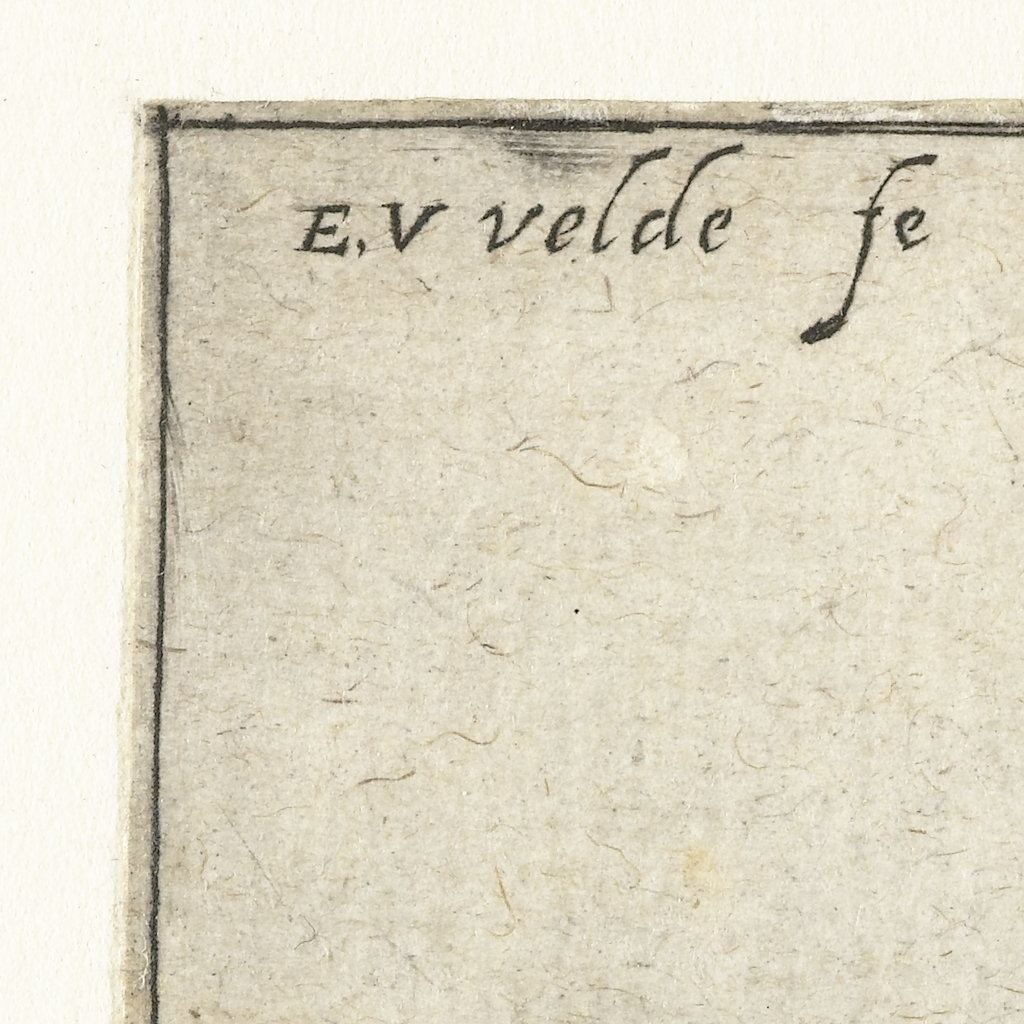 E.V velde fe